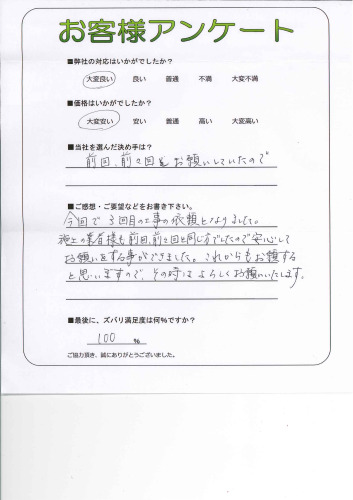 お客様アンケート
■弊社の対応はいかがでしたか？
大変良い 良い 普通 不満 大変不満
■価格はいかがでしたか？
大変安い 安い 普通 高い 大変高い
■当社を選んだ決め手は？
前回、前々回もお願いしていたので
■ご感想・ご要望などをお書き下さい。
今回で3回目の工事の依頼となりました。
施工の業者様も前回、前々回と同じ方でしたので安心して
お願いをする事ができました。これからもお願する
と思いますので、その時はよろしくお願いいたします。
■最後に、ズバリ満足度は何%ですか？
100 %
ご協力頂き、誠にありがとうございました。